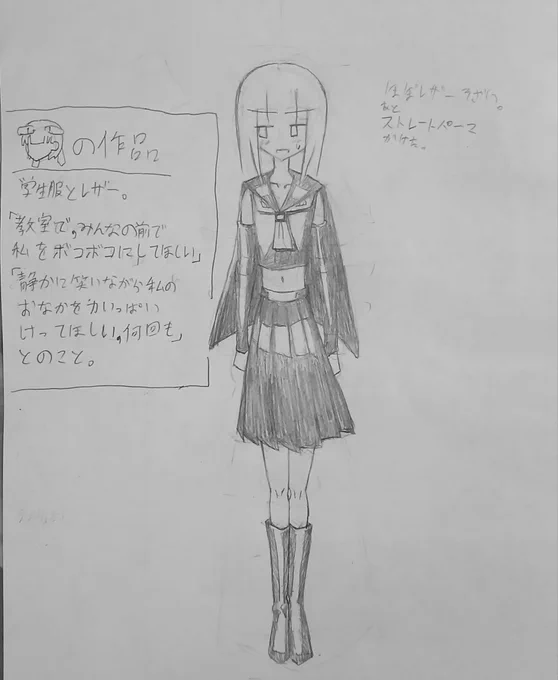 の作品
学生服とレザー。
「教室で、みんなの前で
私をボコボコにしてほしい」
「静かに笑いながら私の
おなかを力いっぱい
けってほしい。何回も」
とのこと。
ほぼレザー
あと
ストレートパーマ
かけた。